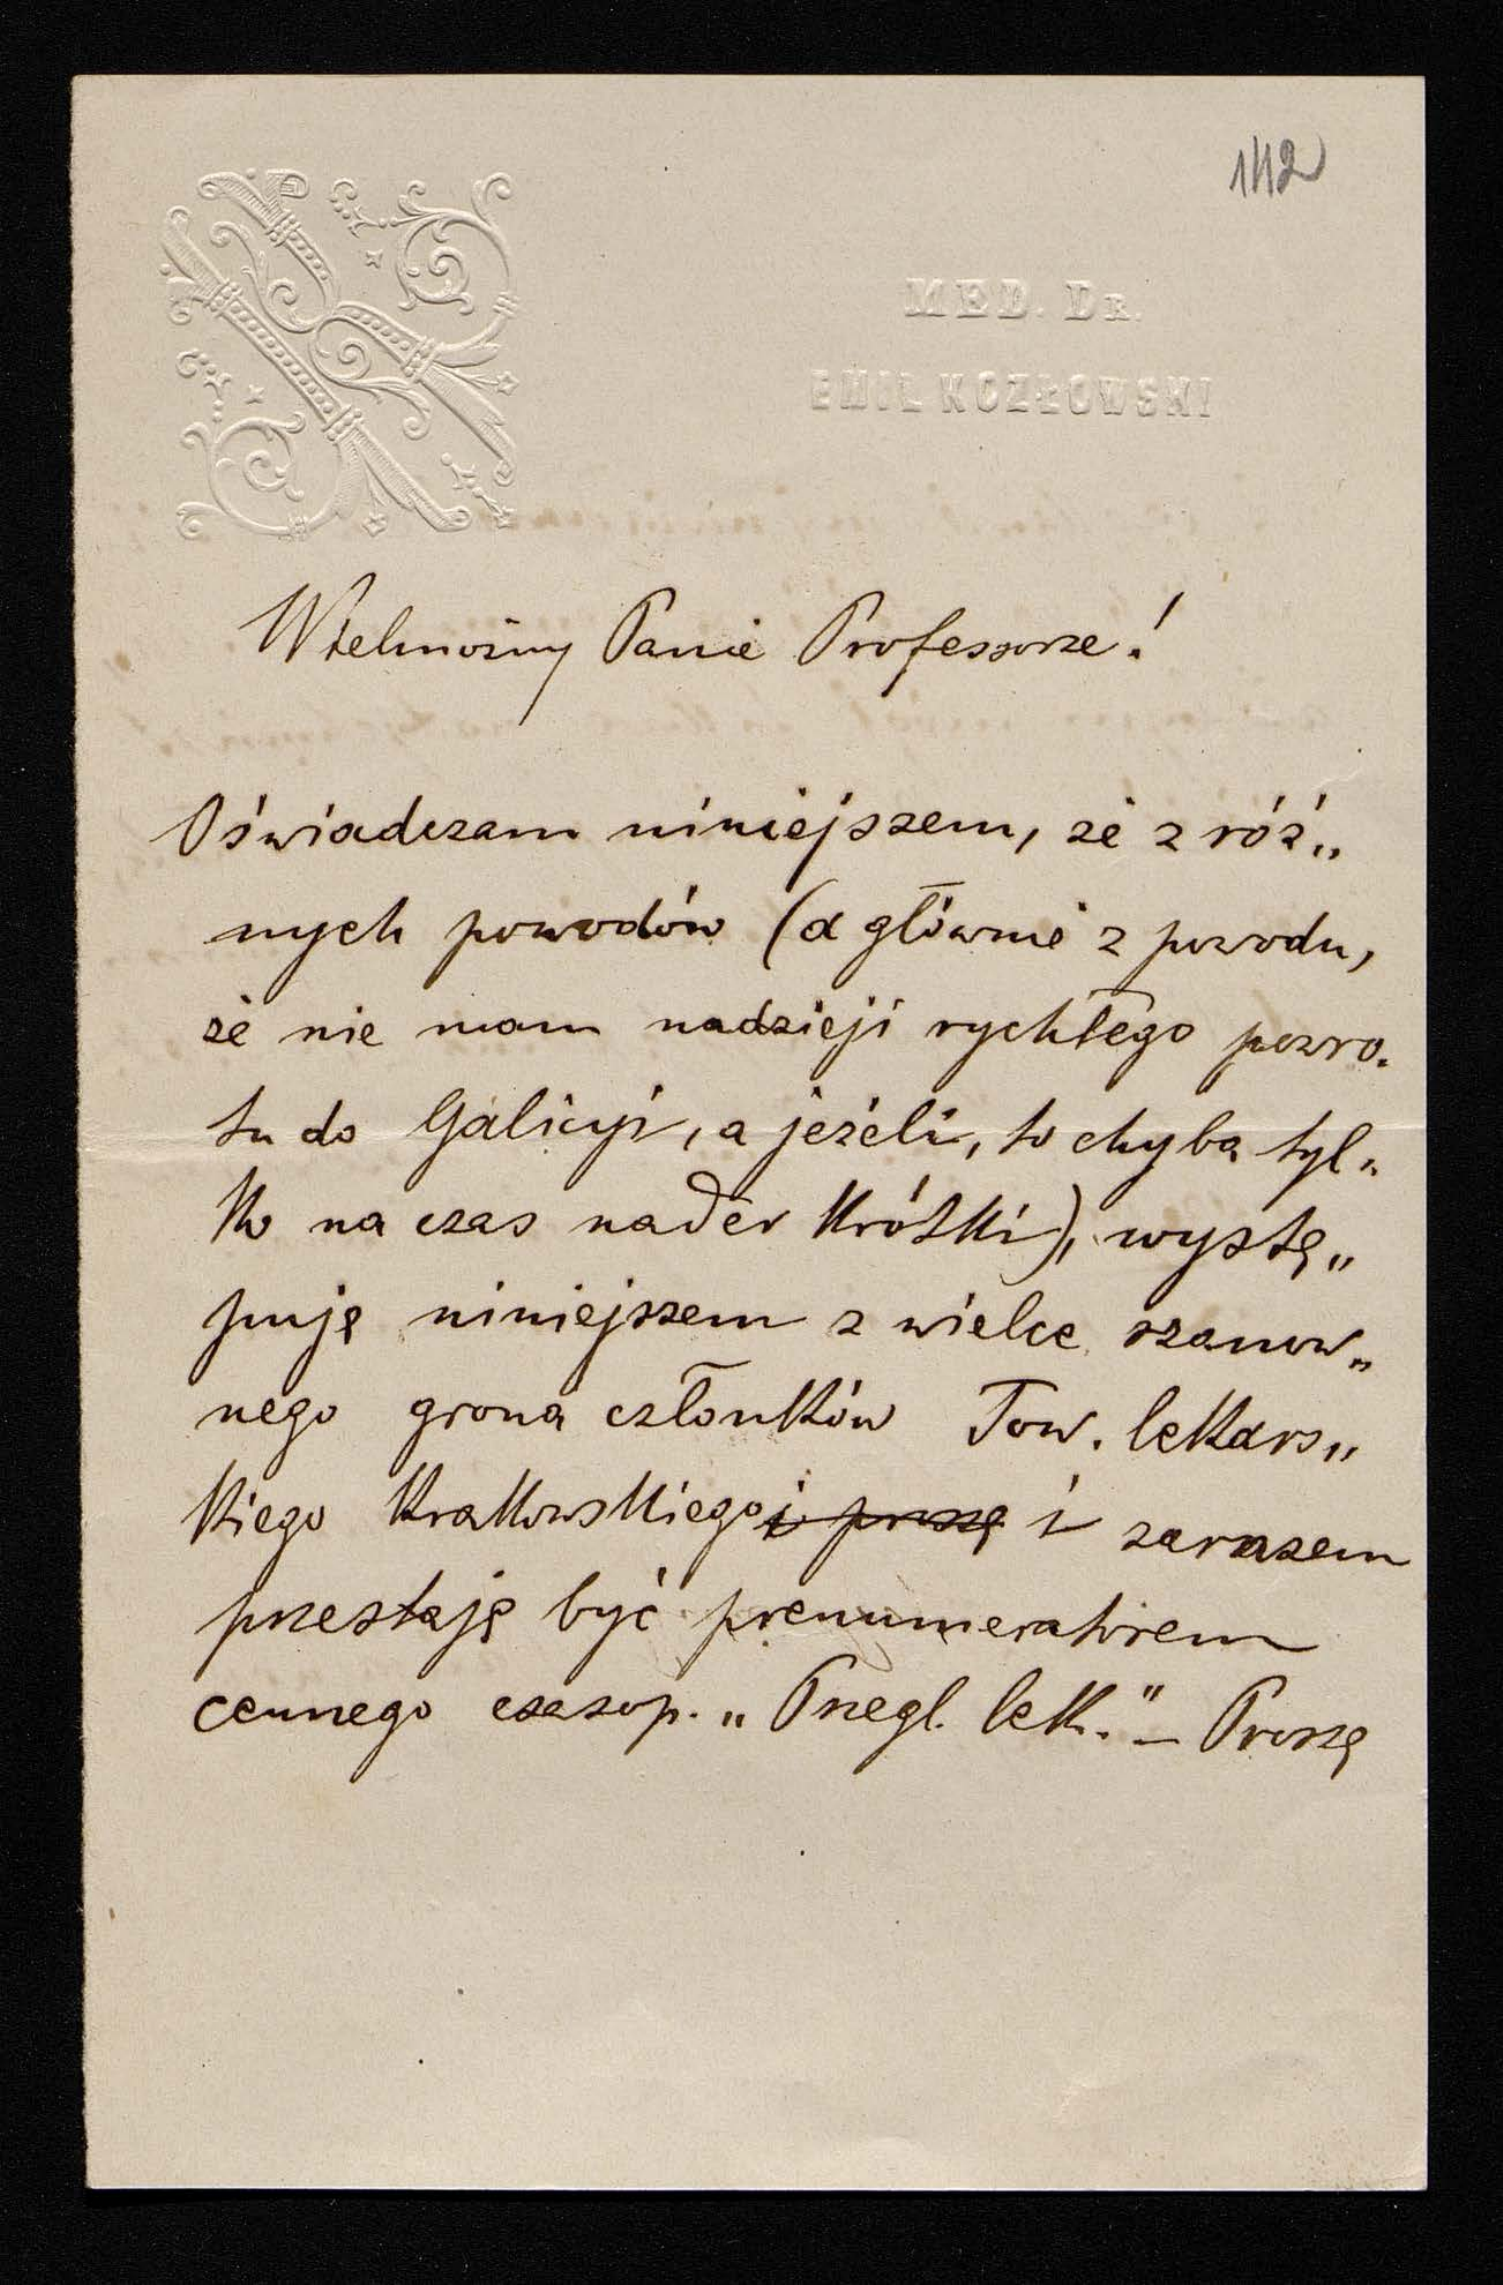 142
MED. DR.
EMIL KOZŁOWSKI
Wielmożny Panie Professorze!
Oświadczam niniejszem, że z róż„
nych powodów (a głównie z powodu,
że nie mam nadzieji rychłego powro„
tu do Galicyi, a jeżeli, to chyba tyl„
ko na czas nader krótki), wystę„
puję niniejszem z wielce szanow„
nego grona członków Tow. lekars„
kiego Krakowskiego i proszę i zarazem
przestaję być prenumeratorem
cennego czasop. „Przegl. lek." – Proszę